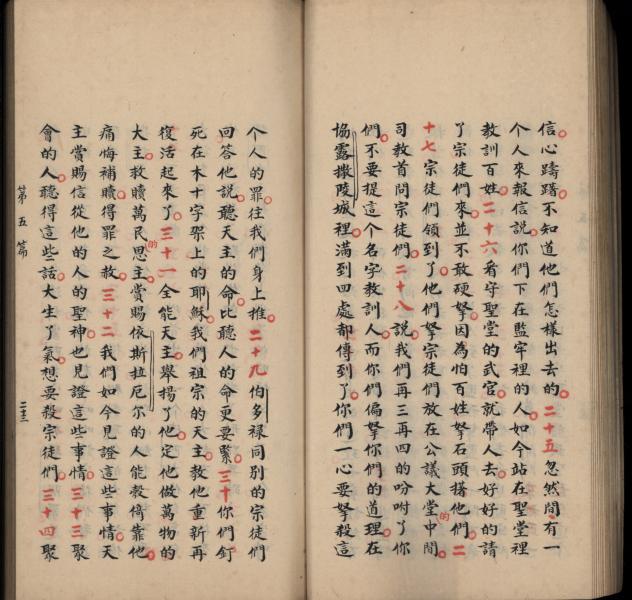 信心躊躇不知道他們怎樣出去的二十五忽然間有一
个人來報信説你們下在監牢裡的人如今站在聖堂裡
教訓百姓二十六看守聖堂的武官就帶人去好好的請
了宗徒們來並不敢硬拏因為怕百姓拏石頭撻他們二
十七宗徒們領到了他們拏宗徒們放在公議大堂的中間
司教首問宗徒們二十八說我們再三再四的吩咐了你
們不要提這个名字教訓人而你們偏拏你們的道理在
協露撒陵城裡滿到四處都傳到了你們一心要拏殺這
个人的罪往我們身上推二十九伯多祿同別的宗徒們
回答他説聽天主的命比聽人的命更要緊三十你們釘
死在木十字架上的耶穌我們祖宗的天主教他重新再
復活起來了三十一全能天主舉揚了他定他做萬物的
大主救贖萬民的恩主賞賜依斯拉厄尔的人能彀倚靠他
痛悔補贖得罪之赦三十二我們如今見證這些事情天
主賞賜信從他的人的聖神也見證這些事情三十三聚
會的人聽得這些話大生了氣想要殺宗徒們三十四聚
第五篇